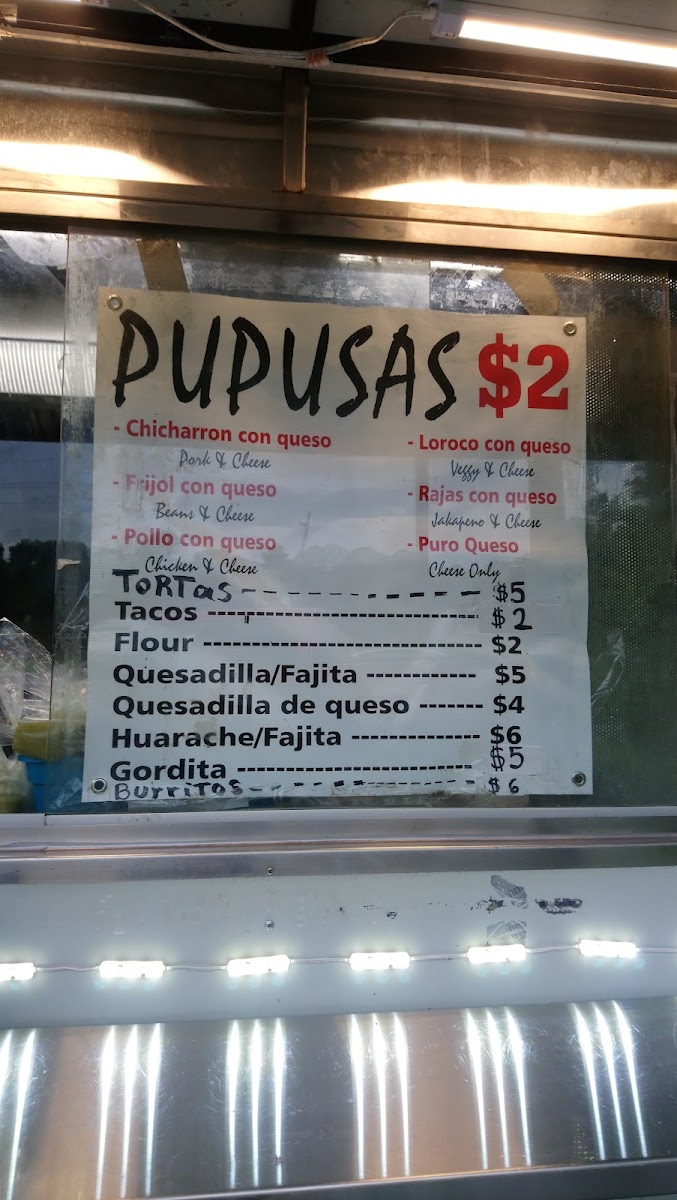 PUPUSAS $2
- Chicharron con queso
Pork & Cheese
- Frijol con queso
Beans & Cheese
- Pollo con queso
Chicken & Cheese
- Loroco con queso
Veggy & Cheese
- Rajas con queso
Jakapeno & Cheese
- Puro Queso
Cheese Only
TORTas ---------- $5
Tacos ---------- $2
Flour ---------- $2
Quesadilla/Fajita ---------- $5
Quesadilla de queso ------- $4
Huarache/Fajita ---------- $6
Gordita ---------- $5
BurriTos ---------- $6